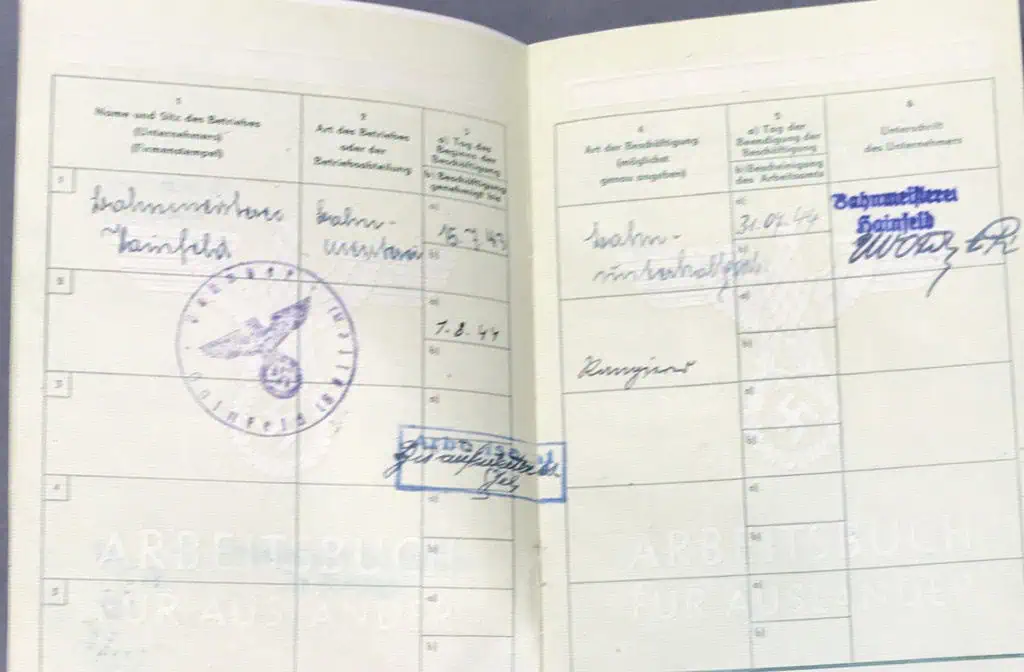 1
Name und Sitz des Betriebes
(Unternehmers)
(Firmenstempel)
2
Art des Betriebes
oder der
Betriebsabteilung
3
a) Tag des
Beginns der
Beschäftigung
b) Beschäftigung
genehmigt bis
1
Bahnmeisterei
Hainfeld
Bahn-
meisterei
a)
15.7.43
b)
2
a)
1.8.44
b)
3
a)
4
a)
b)
5
a)
b)
Hainfeld
ARBEITSBUCH
FÜR AUSLÄNDER
4
Art der Beschäftigung
(möglichst
genau angeben)
5
a) Tag der
Beendigung der
Beschäftigung
b) Bescheinigung
des Arbeitsamts
6
Unterschrift
des Unternehmers
Bahn-
a)
31.07.44
b)
Bahnmeisterei
Hainfeld
a)
b)
a)
b)
a)
b)
a)
b)
ARBEITSBUCH
FÜR AUSLÄNDER